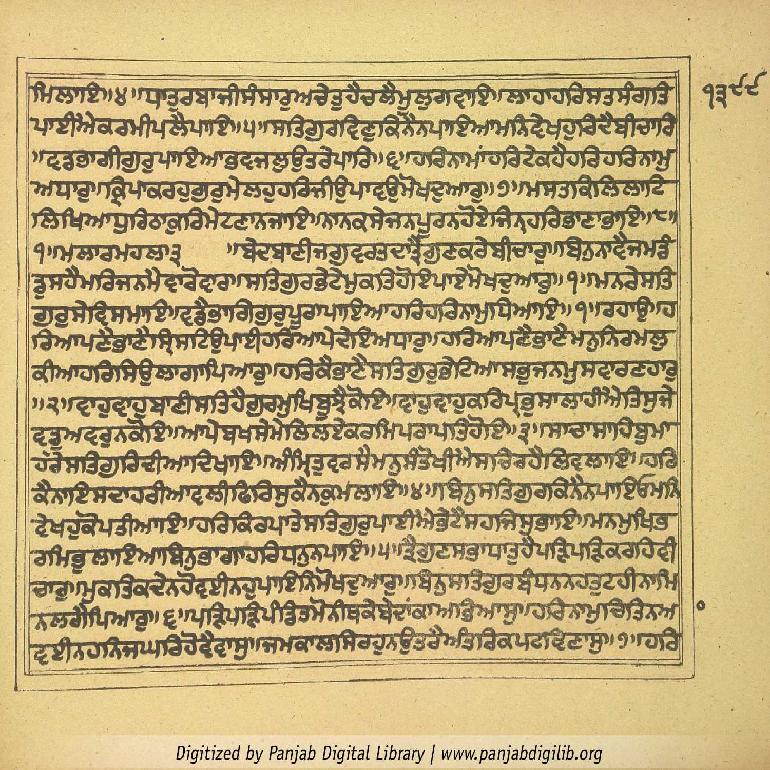 ੧੩੯੯
ਮਿਲਾਇ॥੪॥ਧਾਤੁਰਬਾਜੀਸੰਸਾਰੁਅਚੇਤੁਹੈਚਲੈਮੂਲੁਗਵਾਇ॥ਲਾਹਾਹਰਿਸਤਸੰਗਤਿ
ਪਾਈਐਕਰਮੀਪਲੈਪਾਇ॥੫॥ਸਤਿਗੁਰਵਿਣੁਕਿਨੈਨਪਾਇਆਮਨਿਵੇਖਹੁਰਿਦੈਬੀਚਾਰਿ
॥ਵਡਭਾਗੀਗੁਰੁਪਾਇਆਭਵਜਲੁਉਤਰੇਪਾਰਿ॥੬॥ਹਰਿਨਾਮਾਂਹਰਿਟੇਕਹੈਹਰਿਹਰਿਨਾਮੁ
ਅਧਾਰੁ॥ਕ੍ਰਿਪਾਕਰਹੁਗੁਰੁਮੇਲਹੁਹਰਿਜੀਉਪਾਵਉਮੋਖਦੁਆਰੁ॥੭॥ਮਸਤਕਿਲਿਲਾਟਿ
ਲਿਖਿਆਧੁਰਿਠਾਕੁਰਿਮੇਟਣਾਨਜਾਇ॥ਨਾਨਕਸੇਜਨਪੂਰਨਹੋਏਜਿਨਹਰਿਭਾਣਾਭਾਇ॥੮॥
੧॥ਮਲਾਰਮਹਲਾ੩ ॥ਬੇਦਬਾਣੀਜਗੁਵਰਤਦਾਤ੍ਰੈਗੁਣਕਰੇਬੀਚਾਰੁ॥ਬਿਨੁਨਾਵੈਜਮਡੰ
ਡੁਸਹੈਮਰਿਜਨਮੈਵਾਰੋਵਾਰ॥ਸਤਿਗੁਰਭੇਟੇਮੁਕਤਿਹੋਇਪਾਏਮੋਖਦੁਆਰੁ॥੧॥ਮਨਰੇਸਤਿ
ਗੁਰੁਸੇਵਿਸਮਾਇ॥ਵਡੈਭਾਗਿਗੁਰੁਪੂਰਾਪਾਇਆਹਰਿਹਰਿਨਾਮੁਧਿਆਇ॥੧॥ਰਹਾਉ॥ਹ
ਰਿਆਪਣੈਭਾਣੈਸ੍ਰਿਸਟਿਉਪਾਈਹਰਿਆਪੇਦੇਇਅਧਾਰੁ॥ਹਰਿਆਪਣੈਭਾਣੈਮਨੁਨਿਰਮਲੁ
ਕੀਆਹਰਿਸਿਉਲਾਗਾਪਿਆਰੁ॥ਹਰਿਕੈਭਾਣੈਸਤਿਗੁਰੁਭੇਟਿਆਸਭੁਜਨਮੁਸਵਾਰਣਹਾਰੁ
॥੨॥ਵਾਹੁਵਾਹੁਬਾਣੀਸਤਿਹੈਗੁਰਮੁਖਿਬੂਝੈਕੋਇ॥ਵਾਹੁਵਾਹੁਕਰਿਪ੍ਰਭੁਸਾਲਾਹੀਐਤਿਸੁਜੇ
ਵਡੁਅਵਰੁਨਕੋਇ॥ਆਪੇਬਖਸੇਮੇਲਿਲਏਕਰਮਿਪਰਾਪਤਿਹੋਇ॥੩॥ਸਾਚਾਸਾਹਿਬੁਮਾ
ਹਰੋਸਤਿਗੁਰਿਦੀਆਦਿਖਾਇ॥ਅੰਮ੍ਰਿਤੁਵਰਸੈਮਨੁਸੰਤੋਖੀਐਸਚਿਰਹੈਲਿਵਲਾਇ॥ਹਰਿ
ਕੈਨਾਇਸਦਾਹਰੀਆਵਲੀਫਿਰਿਸੁਕੈਨਕੁਮਲਾਇ॥੪॥ਬਿਨੁਸਤਿਗੁਰਕਿਨੈਨਪਾਇਓਮਨਿ
ਵੇਖਹੁਕੋਪਤੀਆਇ॥ਹਰਿਕਿਰਪਾਤੇਸਤਿਗੁਰੁਪਾਈਐਭੇਟੈਸਹਜਿਸੁਭਾਇ॥ਮਨਮੁਖਿਭ
ਰਮਿਭੁਲਾਇਆਬਿਨੁਭਾਗਾਹਰਿਧਨੁਨਪਾਇ॥੫॥ਤ੍ਰੈਗੁਣਸਭਾਧਾਤੁਹੈਪੜਿਪੜਿਕਰਹਿਵੀ
ਚਾਰੁ॥ਮੁਕਤਿਕਦੇਨਹੋਵਈਨਹੁਪਾਇਨਿਮੋਖਦੁਆਰੁ॥ਬਿਨੁਸਤਿਗੁਰਬੰਧਨਨਤੁਟਹੀਨਾਮਿ
ਨਲਗੈਪਿਆਰੁ॥੬॥ਪੜਿਪੜਿਪੰਡਿਤਮੋਨੀਥਕੇਬੇਦਾਂਕਾਅਭਿਆਸੁ॥ਹਰਿਨਾਮੁਚਿਤਿਨਆ
ਵਈਨਹਨਿਜਘਰਿਹੋਵੈਵਾਸੁ॥ਜਮਕਾਲੁਸਿਰਹੁਨਉਤਰੈਅੰਤਰਿਕਪਟਵਿਣਾਸੁ॥੭॥ਹਰਿ
Digitized by Panjab Digital Library | www.panjabdigilib.org